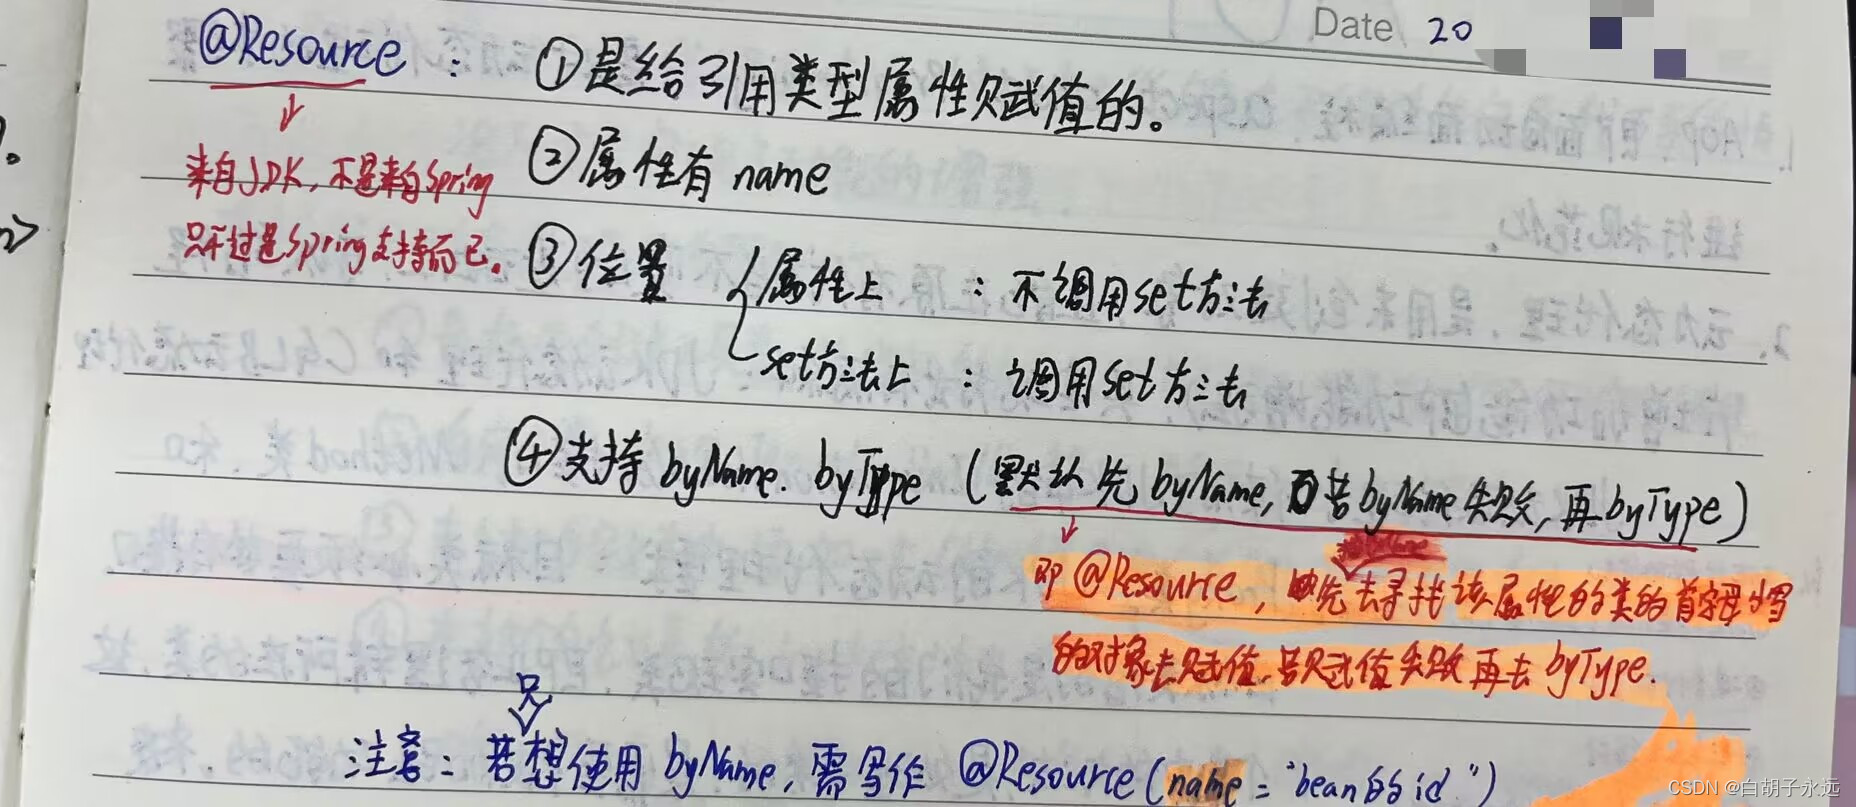 Date 20
@Resource : ①是给引用类型属性赋值的。
来自JDK,不是来自Spring
只不过是Spring支持而已。
②属性有 name
③位置
属性上 : 不调用set方法
set方法上 : 调用set方法
④支持 byName. byType (默认先 byName, 若byName失败, 再byType)
即 @Resource, 先去寻找该属性的类的首字母小写
的对象去赋值,若赋值失败再去 byType.
只
注意: 若想使用 byName, 需写作 @Resource(name = "bean的id")
CSDN @白胡子永远